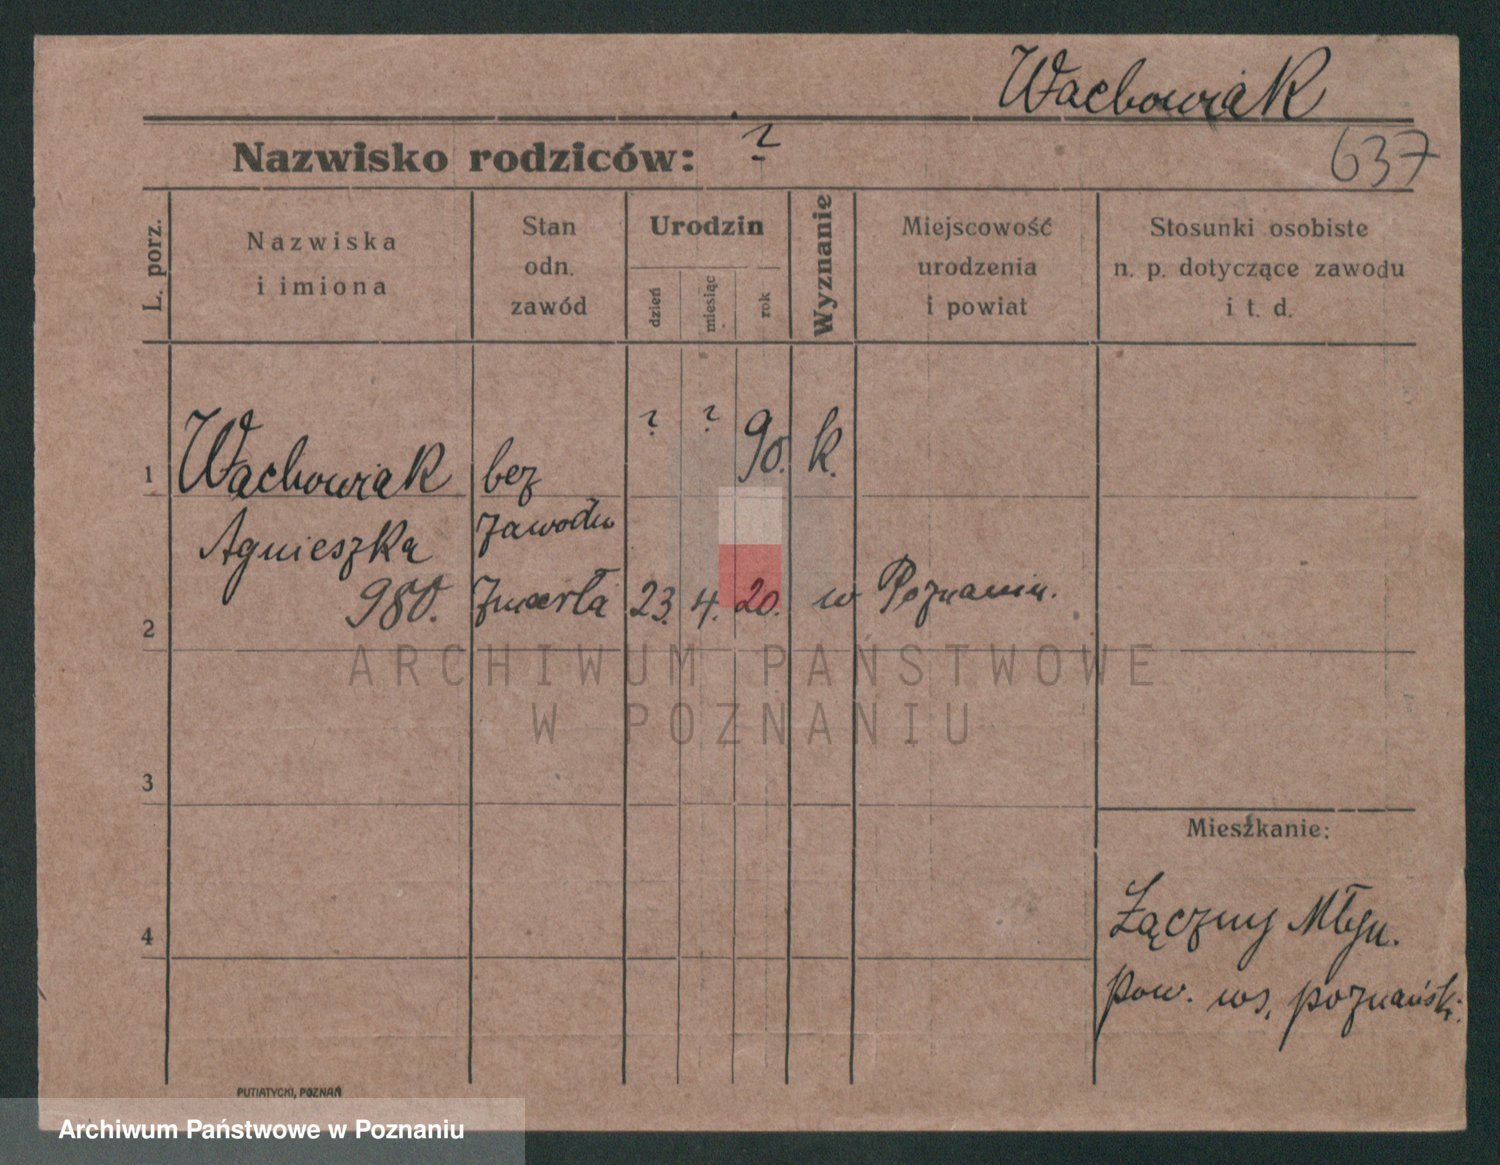 Wachowiak
Nazwisko rodziców: ?
637
L. porz.
Nazwiska
i imiona
Stan
odn.
zawód
Urodzin
dzień
miesiąc
rok
Wyznanie
Miejscowość
urodzenia
i powiat
Stosunki osobiste
n. p. dotyczące zawodu
i t. d.
1 Wachowiak bez ? ? 90. k.
Agnieszka zawodu
2 980. zmarła 23. 4. 20. w Poznaniu.
ARCHIWUM PAŃSTWOWE
W POZNANIU
3
Mieszkanie:
4 Łączny Młyn.
pow. ws. poznański.
PUTIATYCKI, POZNAŃ
Archiwum Państwowe w Poznaniu